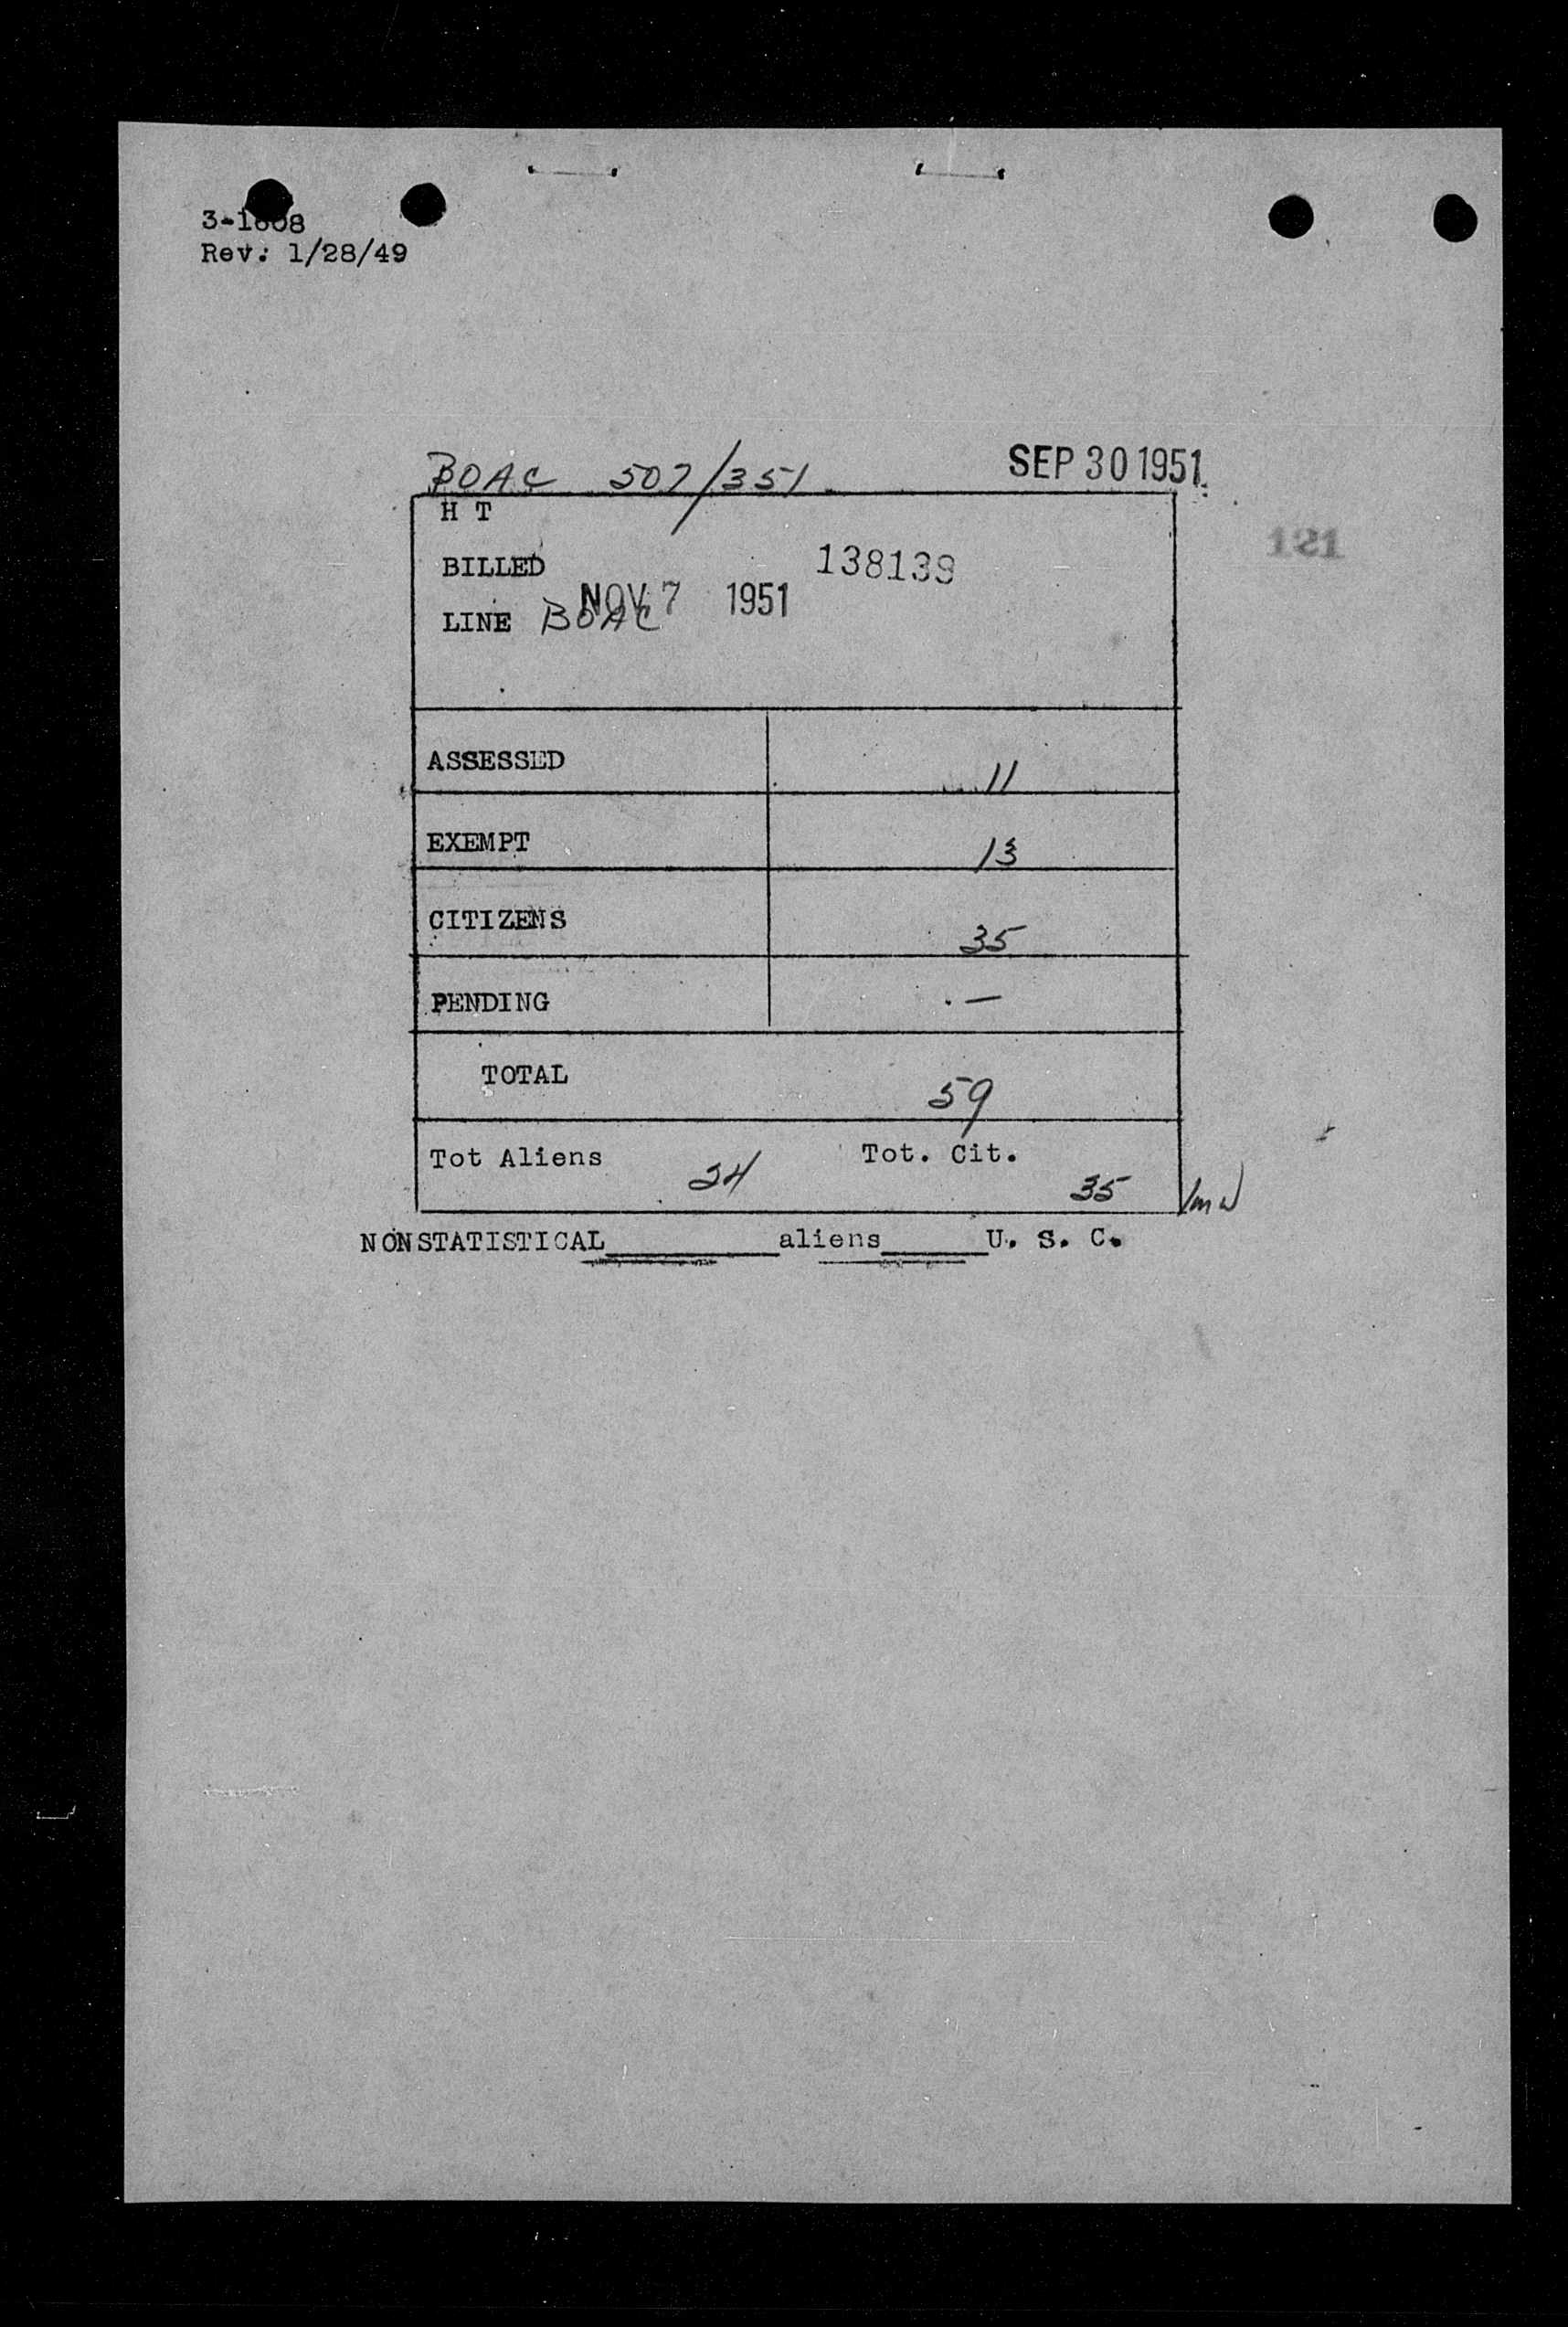 Rev. 1/28/49
BOAC 507/351 SEP 30 1951
H T
121
BILLED 138139
NOV 7 1951
LINE BOAC
ASSESSED 11
EXEMPT 13
CITIZENS 35
PENDING —
TOTAL 59
Tot Aliens 24 Tot. Cit. 35
NONSTATISTICAL________aliens_____U. S. C.